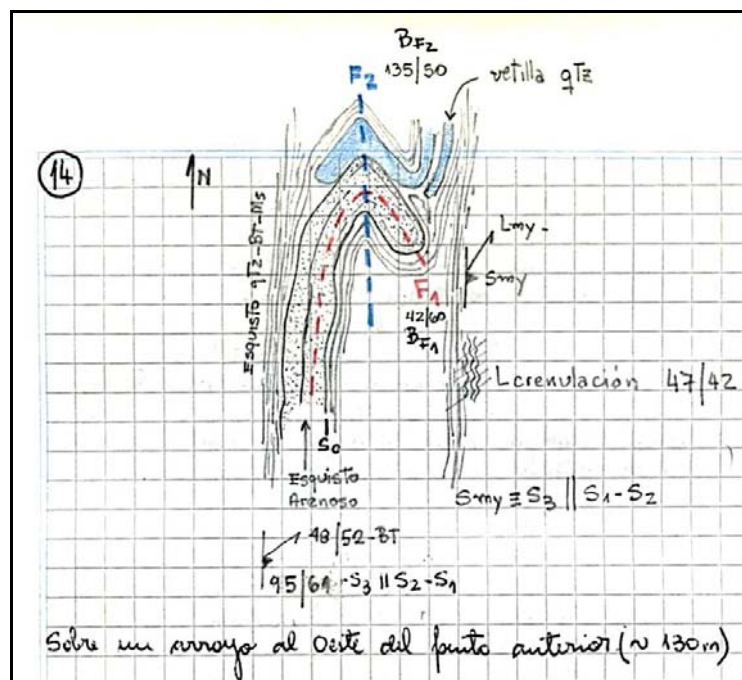 B_F2
F2
135/50
vetilla qTz
14
N
Esquisto qTz-BT-Ms
Lmy-
Smy
F1
42/60
B_F1
Lcrenulación 47/42
So
Esquisto
Arenoso
Smy ≡ S3 || S1-S2
48/52-BT
95/61-S3 || S2-S1
Sobre un arroyo al Oeste del punto anterior (~ 130m)